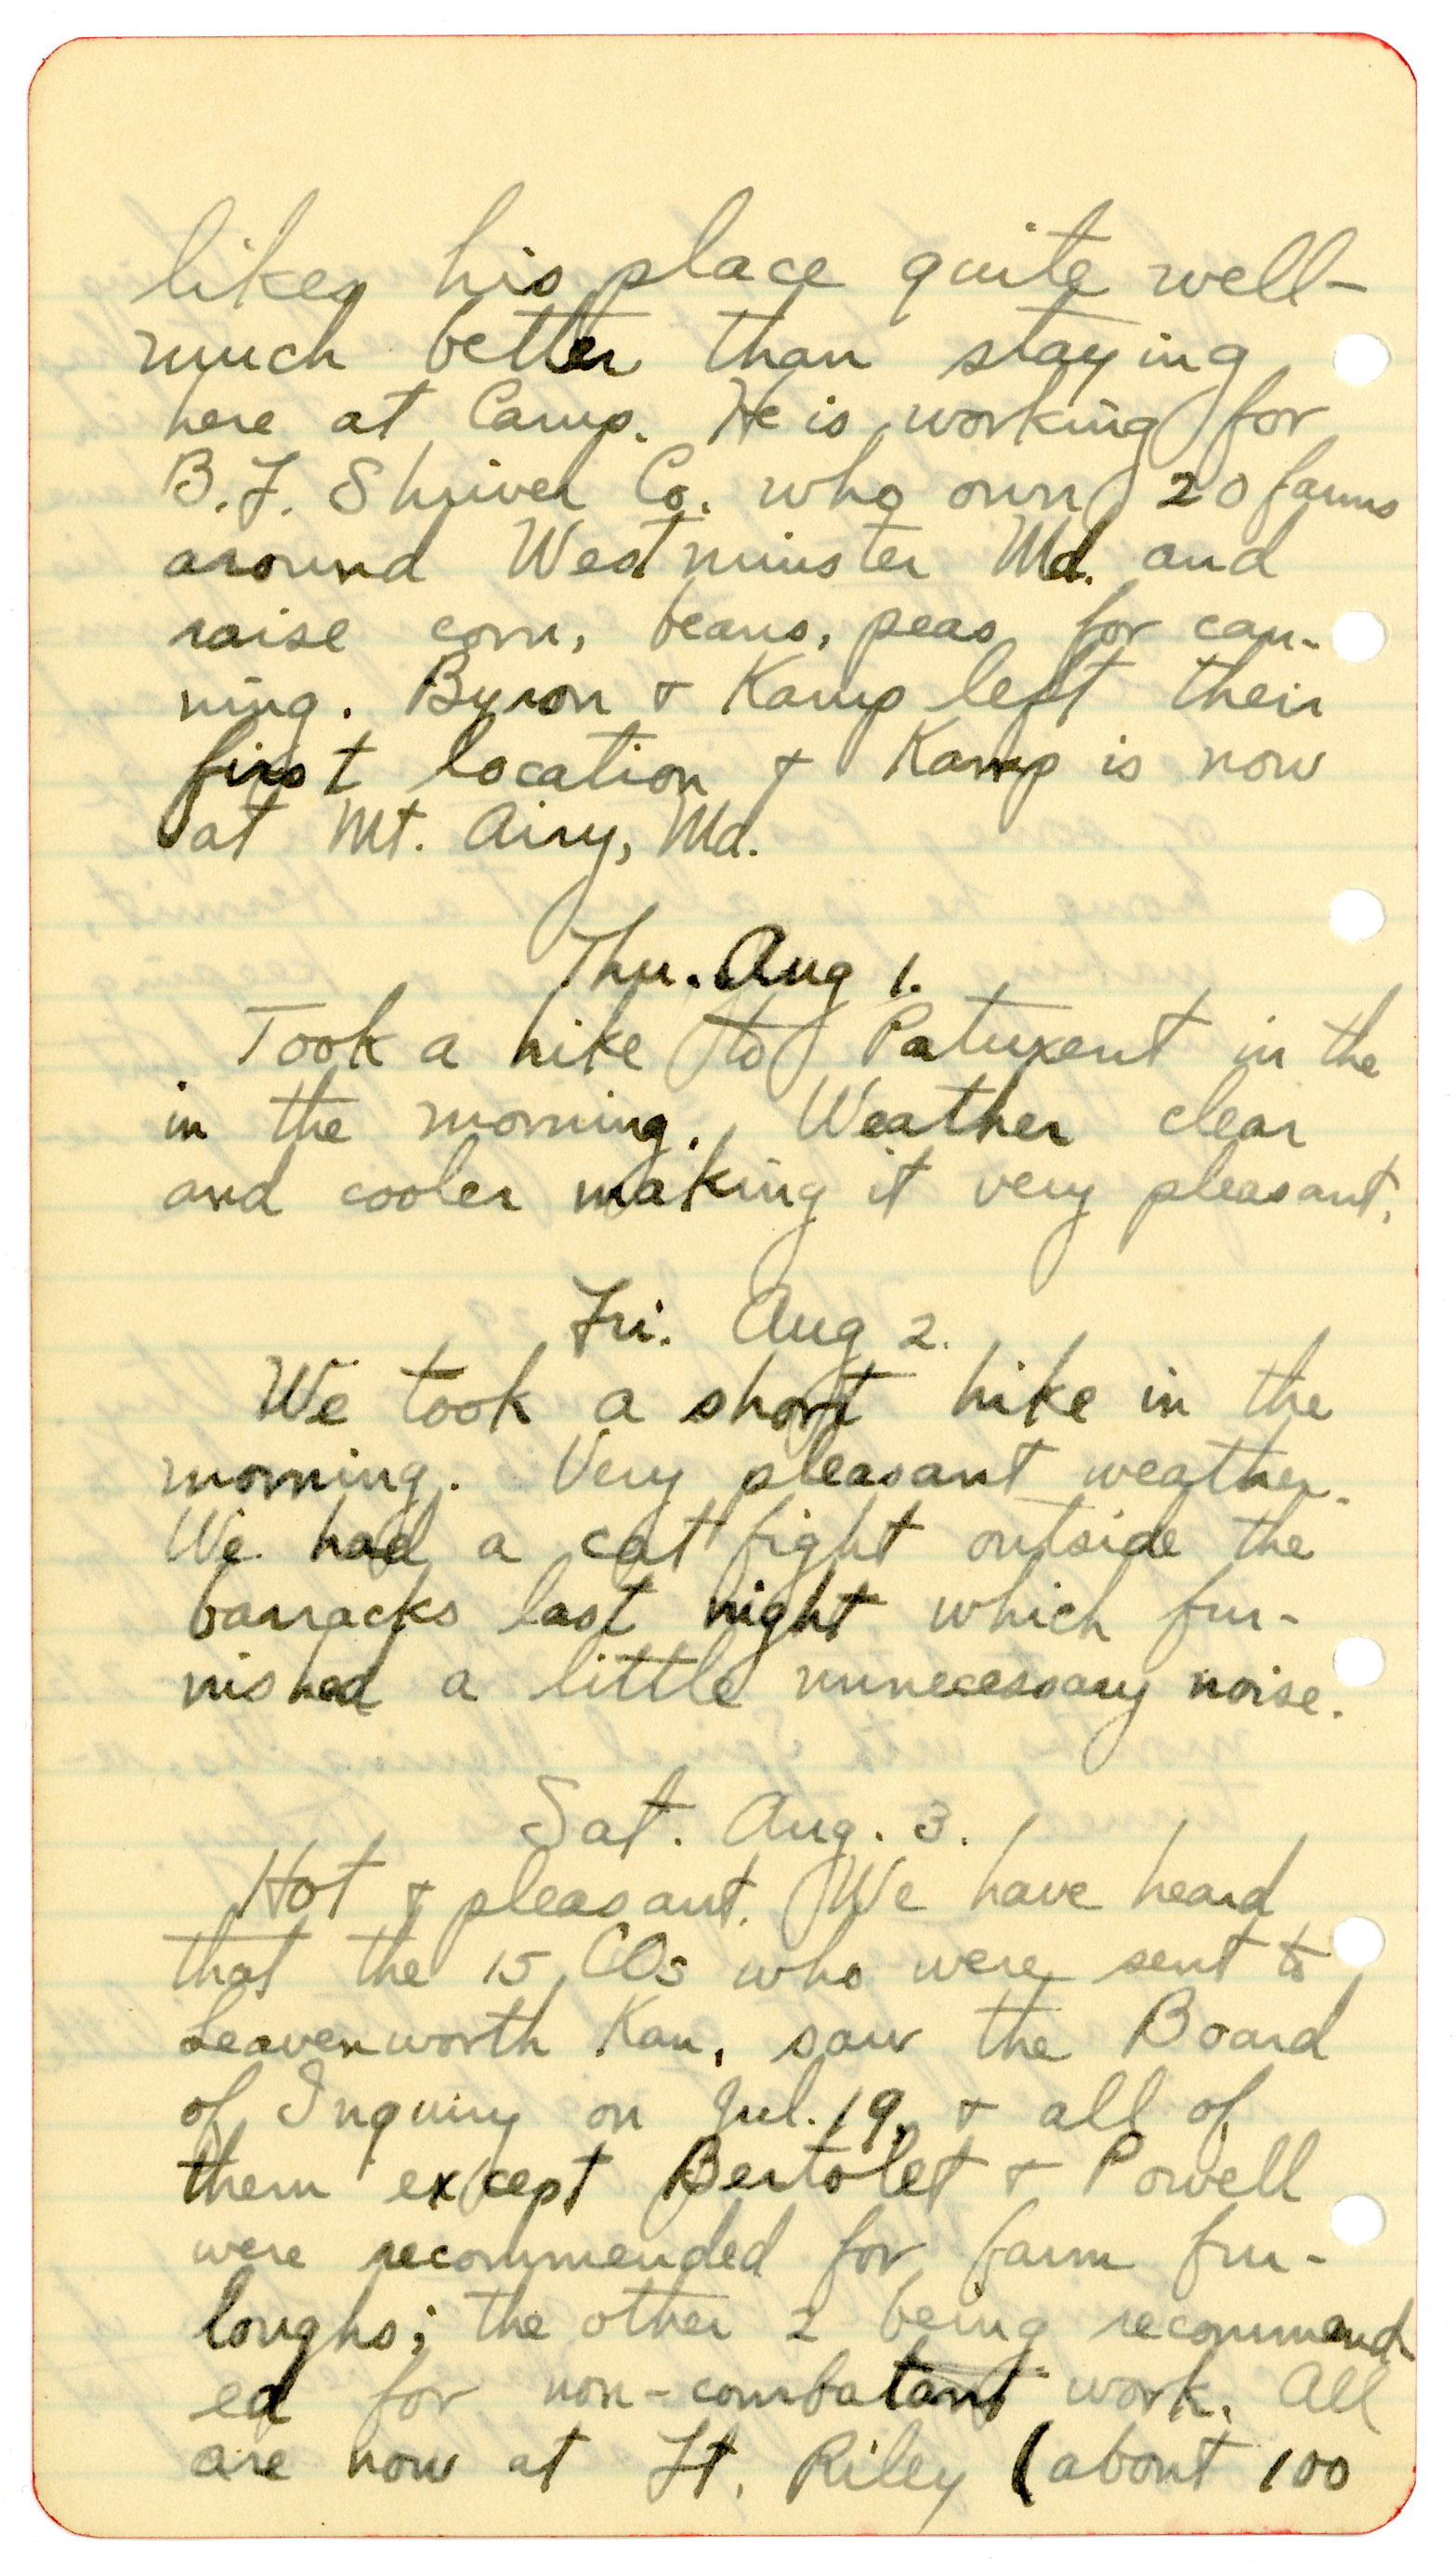 likes his place quite well-
much better than staying
here at Camp. He is working for
B.F. Shriver Co. who own 20 farms
around Westminster Md. and
raise corn, beans, peas for can-
ning. Byron + Kamp left their
first location + Kamp is now
at Mt. Airy, Md.
Thu. Aug 1.
Took a hike to Patuxent in the
in the morning. Weather clear
and cooler making it very pleasant.
Fri. Aug 2.
We took a short hike in the
morning. Very pleasant weather.
We had a cat fight outside the
barracks last night which fur-
nished a little unnecessary noise.
Sat. Aug. 3.
Hot + pleasant. We have heard
that the 15 COs who were sent to
Leavenworth Kan, saw the Board
of Inquiry on Jul. 19, + all of
them except Bertolet + Powell
were recommended for farm fur-
loughs; the other 2 being recommend-
ed for non-combatant work. All
are now at Ft. Riley (about 100